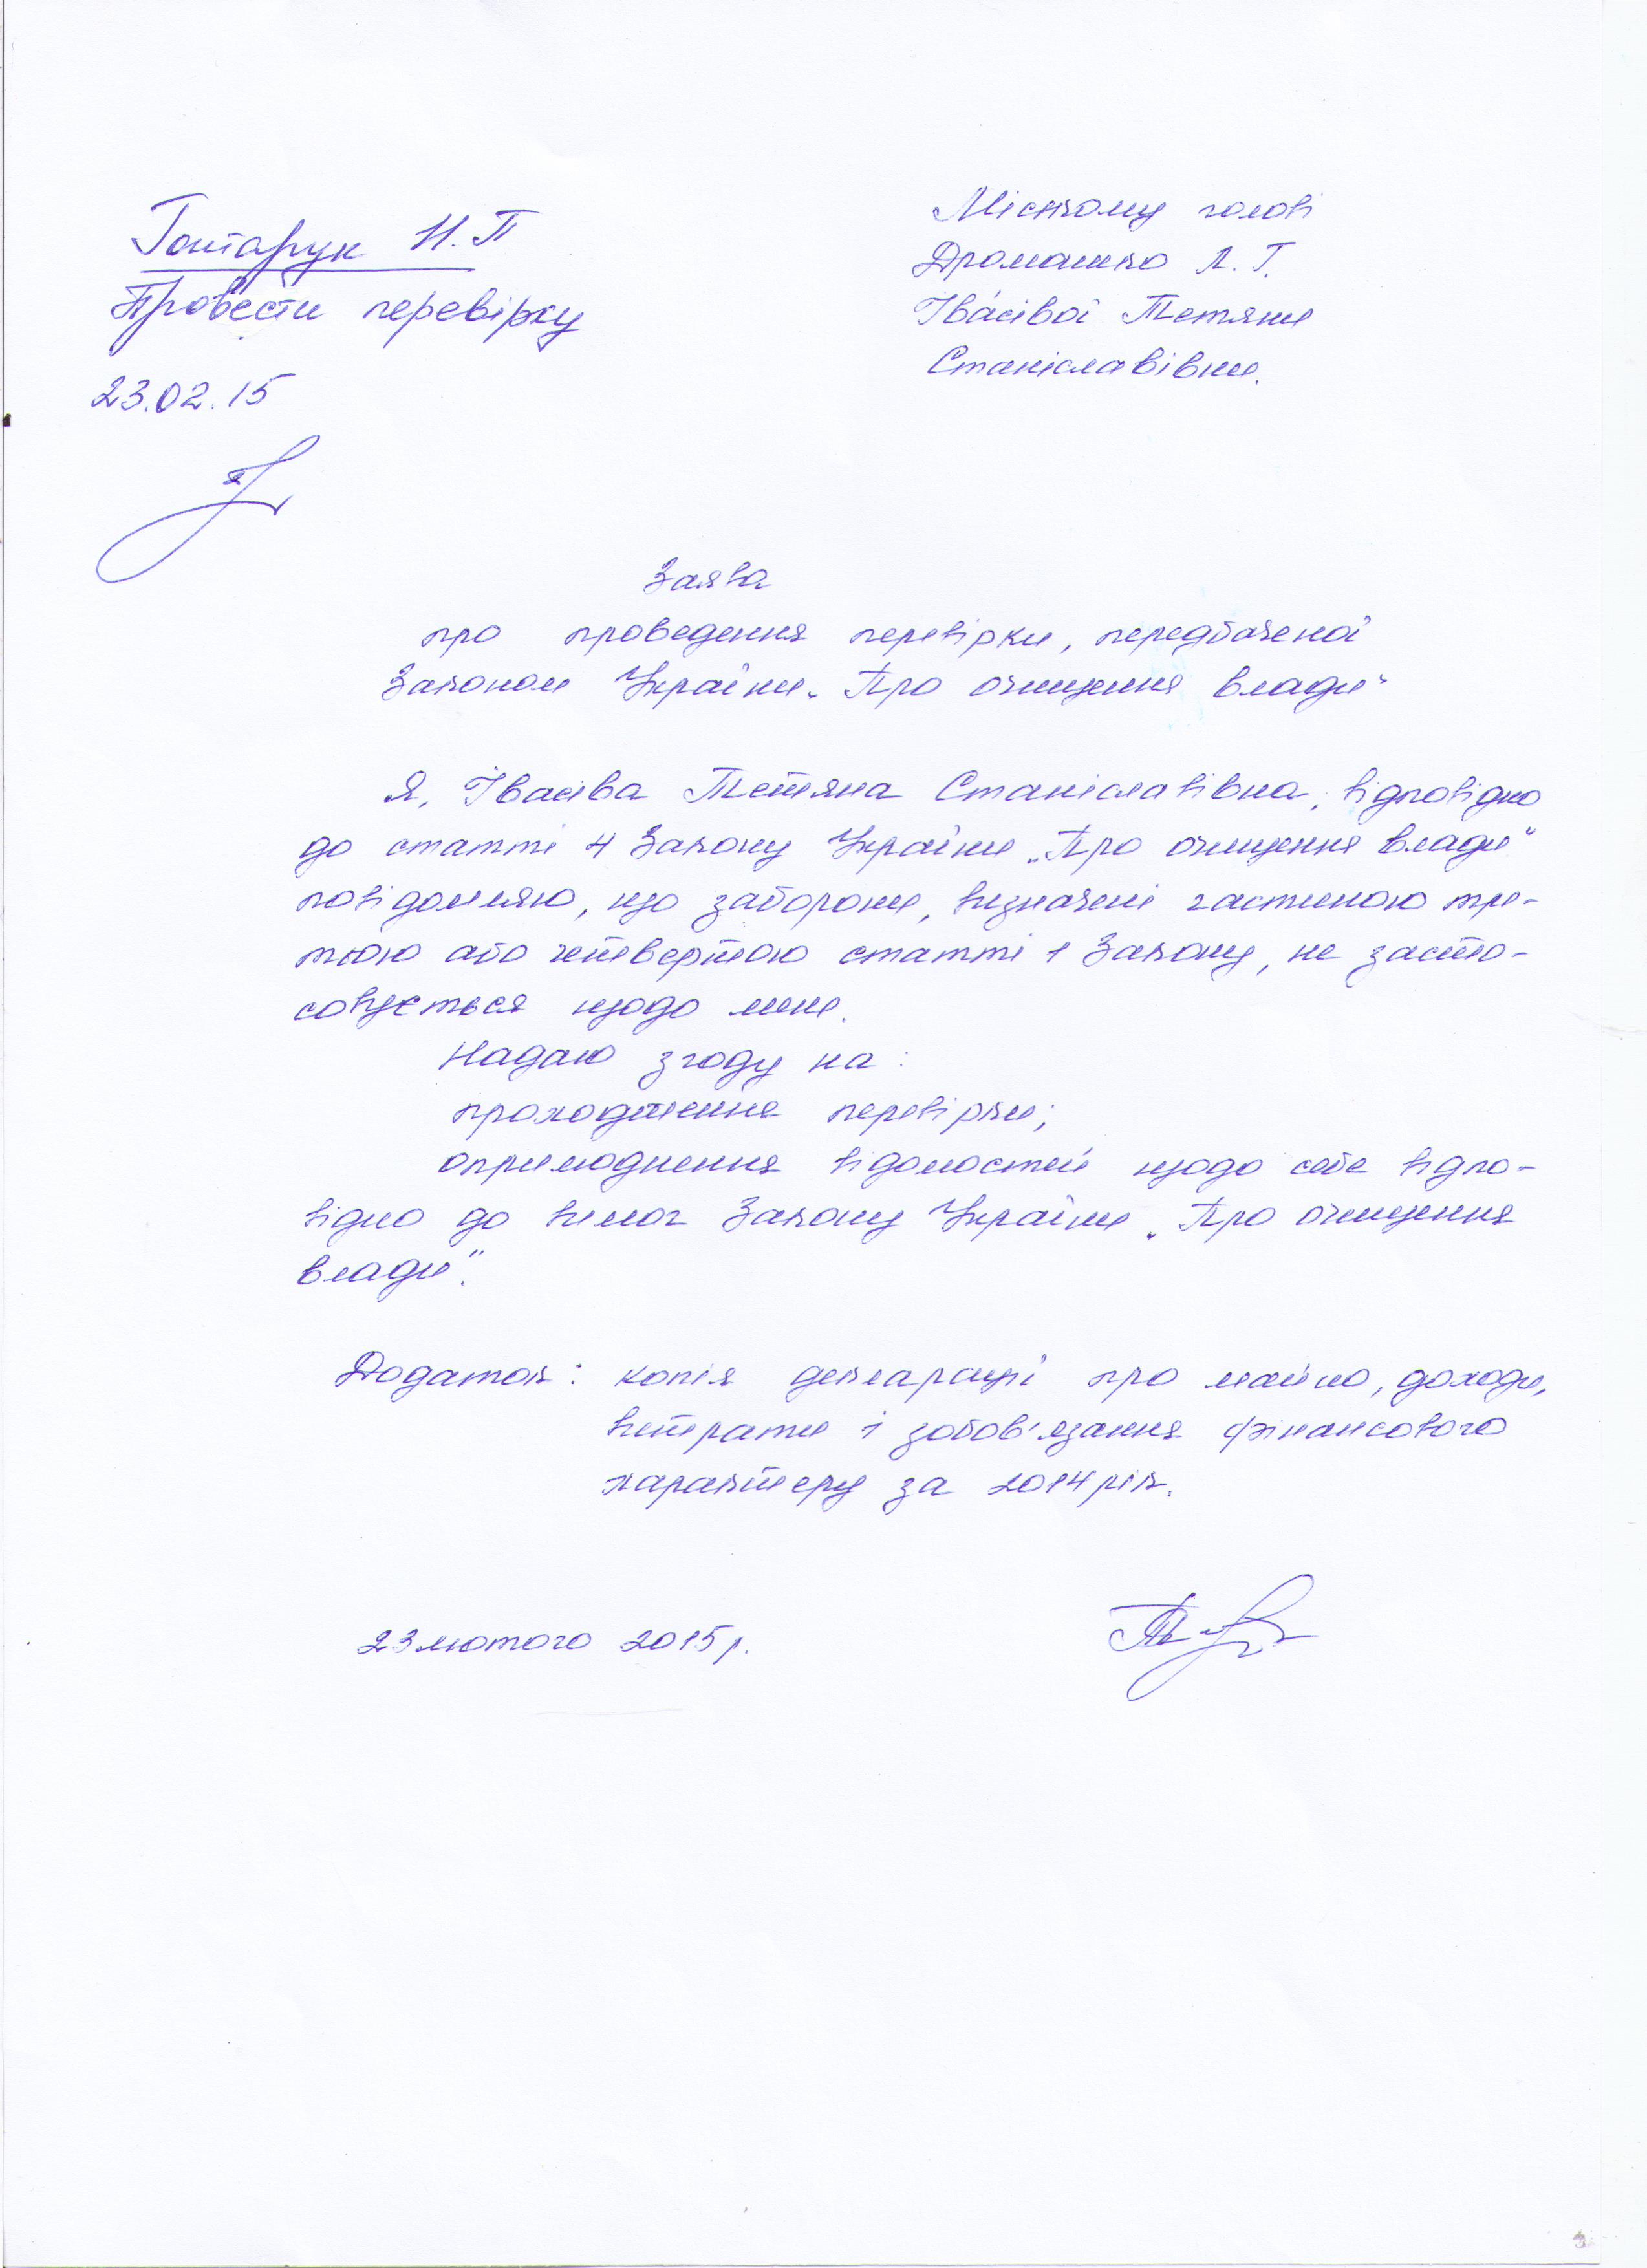 Гончарук Н.П
Провести перевірку
23.02.15
Міському голові
Дромашко Л. Г.
Івасівої Тетяни
Станіславівни.
Заява
про проведення перевірки, передбаченої
Законом України „Про очищення влади"
Я, Івасіва Тетяна Станіславівна, відповідно
до статті 4 Закону України „Про очищення влади"
повідомляю, що заборони, визначені частиною тре-
тьою або четвертою статті 1 Закону, не засто-
совується щодо мене.
Надаю згоду на:
проходження перевірки;
оприлюднення відомостей щодо себе відпо-
відно до вимог Закону України „Про очищення
влади".
Додаток: копія декларації про майно, доходи,
витрати і зобов'язання фінансового
характеру за 2014 рік.
23 лютого 2015 р.